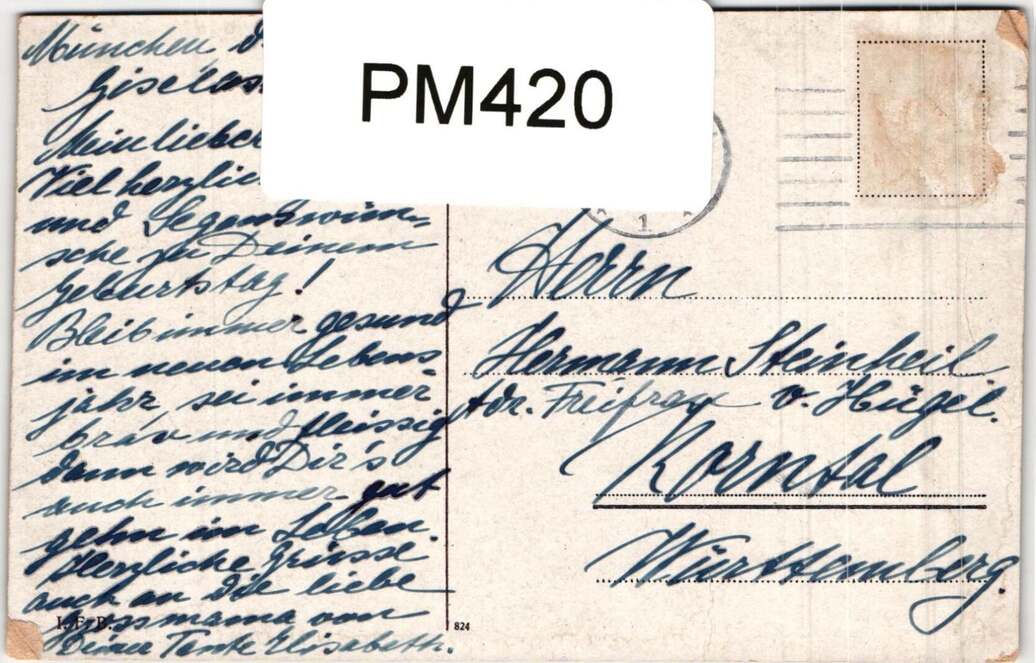 München d.
Giselast
PM420
Mein lieber
Viel herzlic
und Segenswün-
sche zu Deinem
Geburtstag!
Bleib immer gesund
im neuen Lebens
jahr, sei immer
brav und fleissig
dann wird Dir's
auch immer gut
gehn im Leben.
Herzliche Grüsse
auch an Die liebe
Grossmama von
Deiner Tante Elisabeth.
I. F. B.
824
1
Herrn
Hermann Steinheil
Adr. Freifrau v. Hügel.
Korntal
Württemberg.